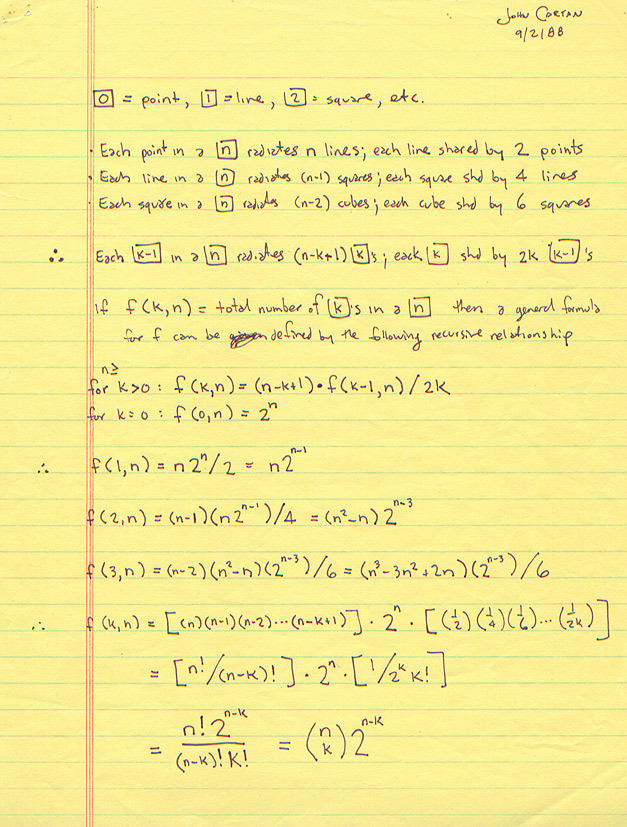 John Cortan
9/2/88
[0] = point, [1] = line, [2] = square, etc.
· Each point in a [n] radiates n lines; each line shared by 2 points
· Each line in a [n] radiates (n-1) squares; each square shd by 4 lines
· Each square in a [n] radiates (n-2) cubes; each cube shd by 6 squares
∴ Each [k-1] in a [n] radiates (n-k+1) [k]'s; each [k] shd by 2k [k-1]'s
If f(k,n) = total number of [k]'s in a [n] then a general formula
for f can be defined by the following recursive relationship
n≥
for k>0 : f(k,n) = (n-k+1)•f(k-1,n)/2k
for k=0 : f(0,n) = 2^n
∴ f(1,n) = n2^n/2 = n2^{n-1}
f(2,n) = (n-1)(n2^{n-1})/4 = (n²-n)2^{n-3}
f(3,n) = (n-2)(n²-n)(2^{n-3})/6 = (n³-3n²+2n)(2^{n-3})/6
∴ f(k,n) = [(n)(n-1)(n-2)...(n-k+1)]·2^n·[(1/2)(1/4)(1/6)...(1/2k)]
= [n!/(n-k)!]·2^n·[1/2^k k!]
= n!2^{n-k}/(n-k)!k! = (n k)2^{n-k}